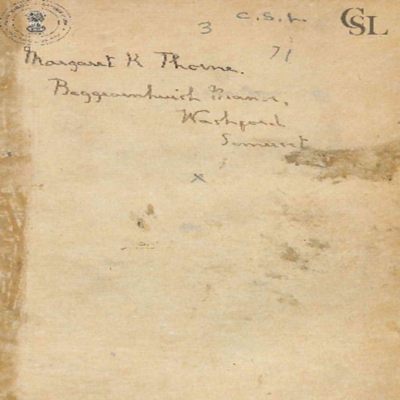 C.S.L.
3
CSL
71
Margaret K Thorne.
Beggearnhuish Manor,
Washford
Somerset
x